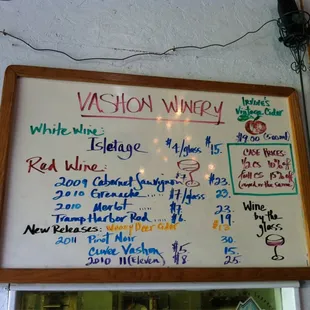 VASHON WINERY
White Wine:
Isletage $4/glass $15.
Red Wine:
2009 Cabernet Sauvignon $7 $23.
2010 Grenache $7/glass 23.
2010 Merlot $7 23.
Tramp Harbor Red $6 19.
New Releases: Honey Deer Cider $12
2011 Pinot Noir 30.
Cuvee Vashon $5 15.
2010 11 (Eleven) $8 25.
Vintage Cider
$9.00 (500ml)
CASE PRICES:
1/2 CS 10% off
full CS 15% off
Wine
by the
glass